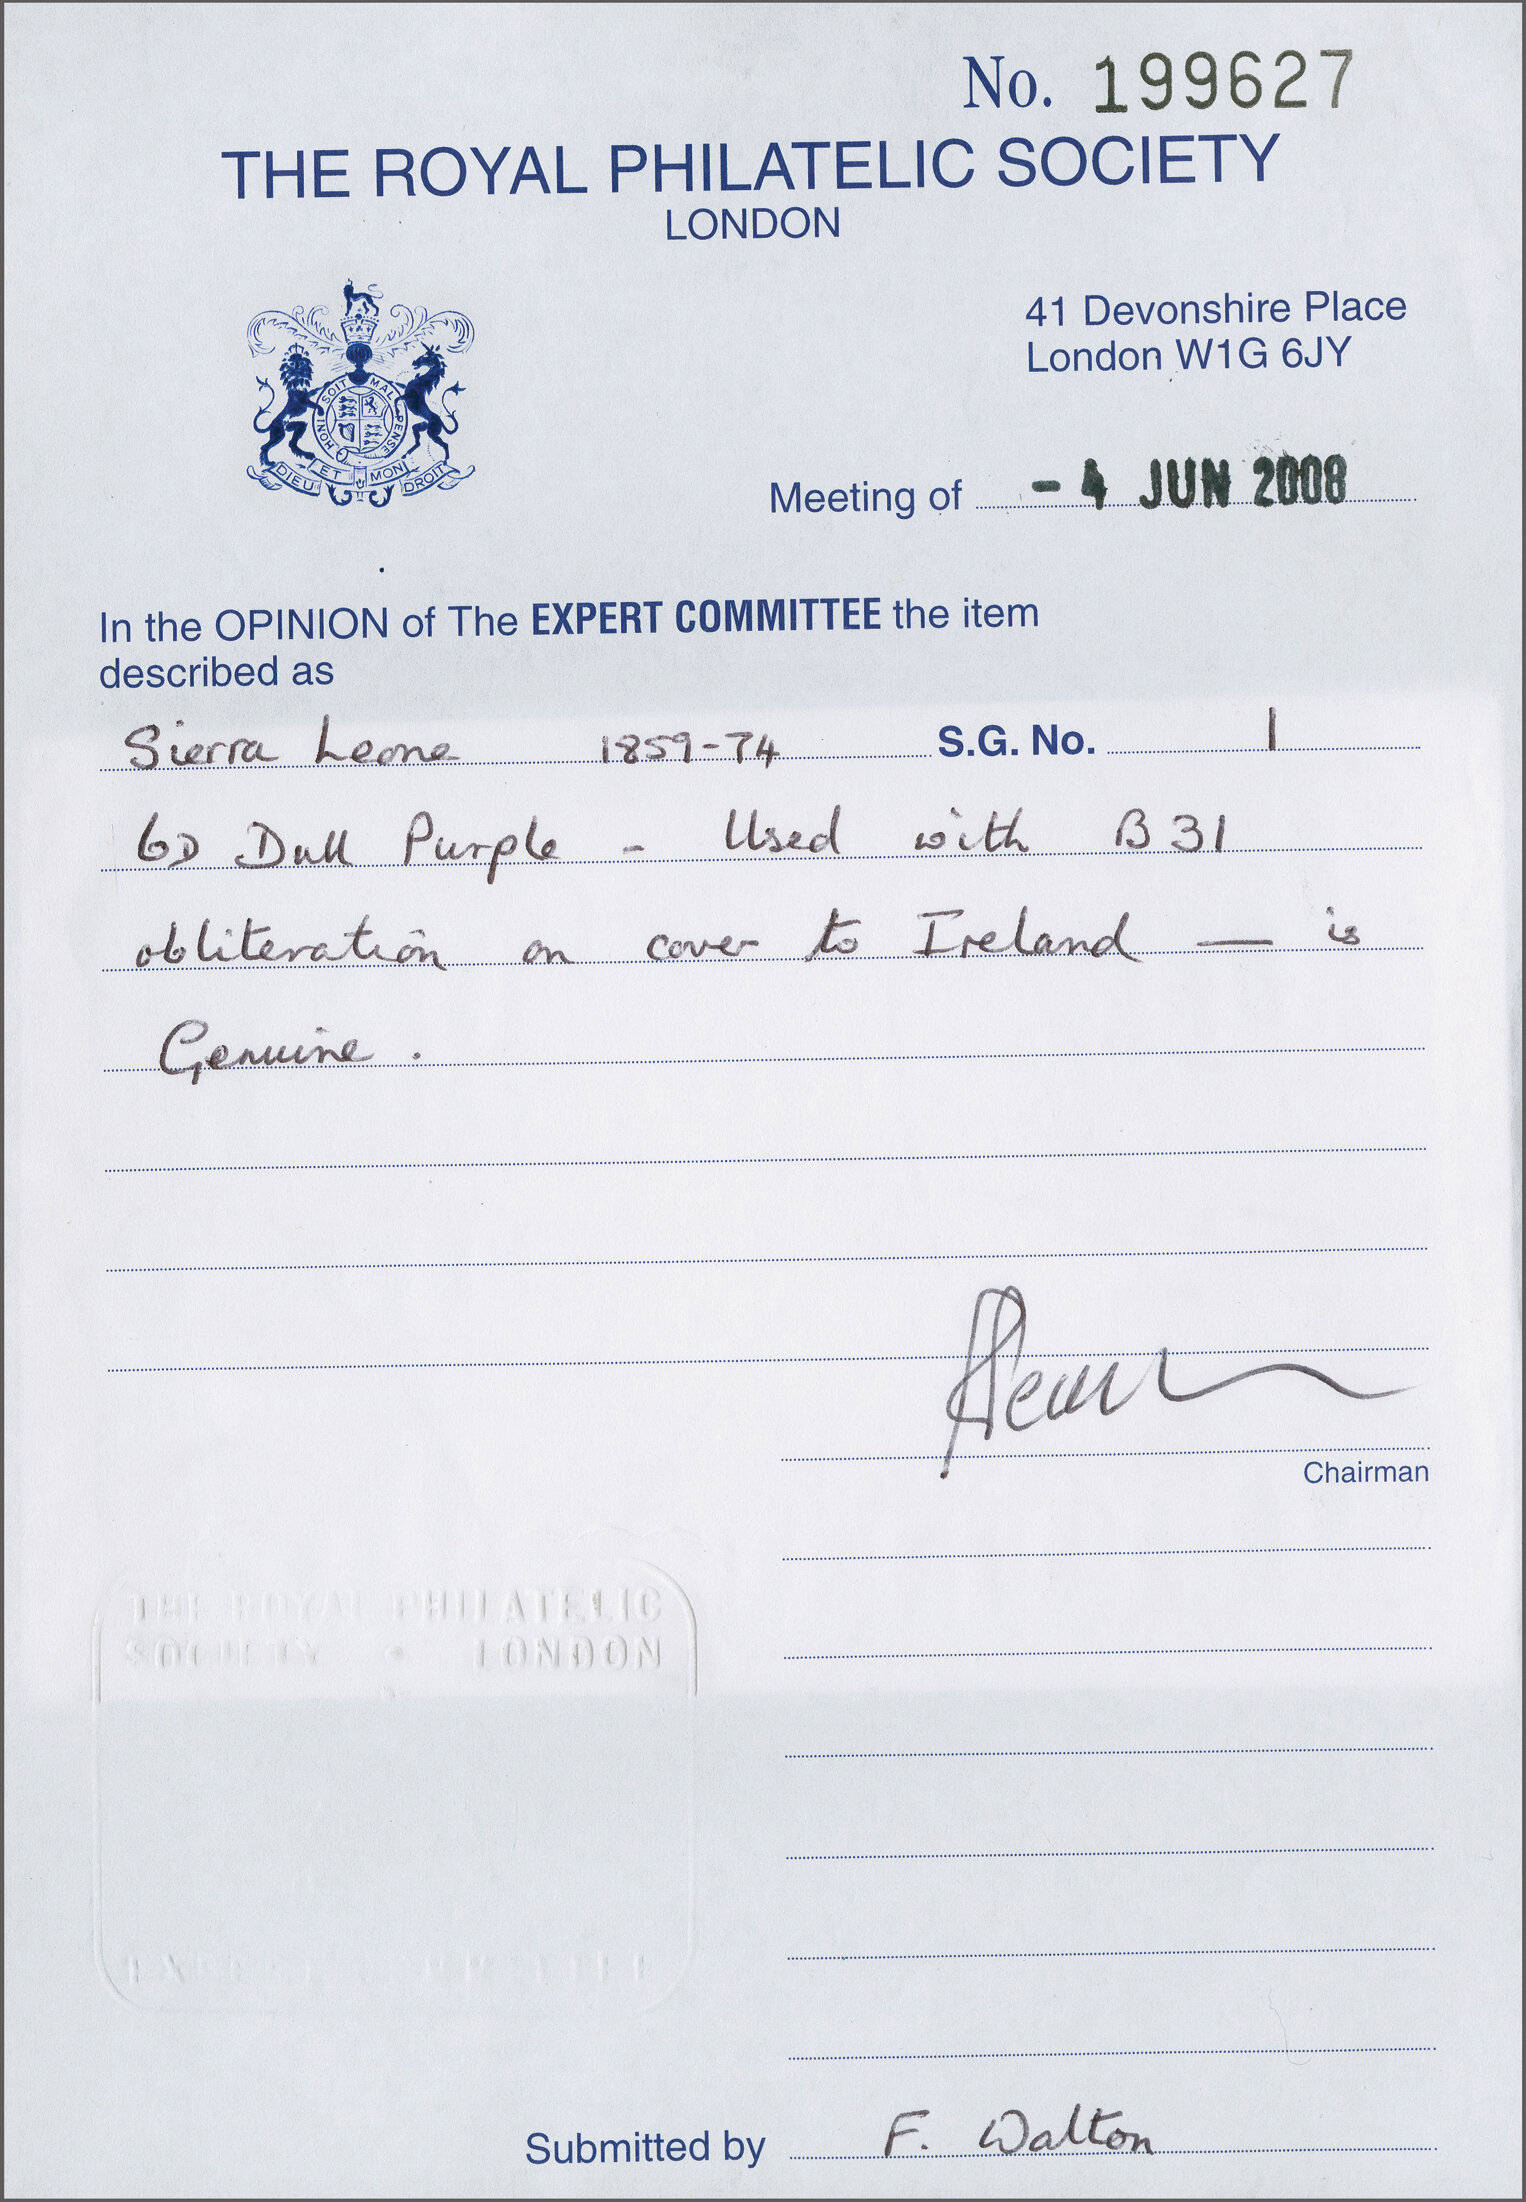 No. 199627
THE ROYAL PHILATELIC SOCIETY
LONDON
41 Devonshire Place
London W1G 6JY
HONI SOIT MAL PENSE
DIEU ET MON DROIT
Meeting of - 4 JUN 2008
In the OPINION of The EXPERT COMMITTEE the item
described as
Sierra Leone 1859-74 S.G. No. 1
6D Dull Purple - Used with B31
obliteration on cover to Ireland — is
Genuine.
Chairman
THE ROYAL PHILATELIC
SOCIETY • LONDON
Submitted by F. Walton